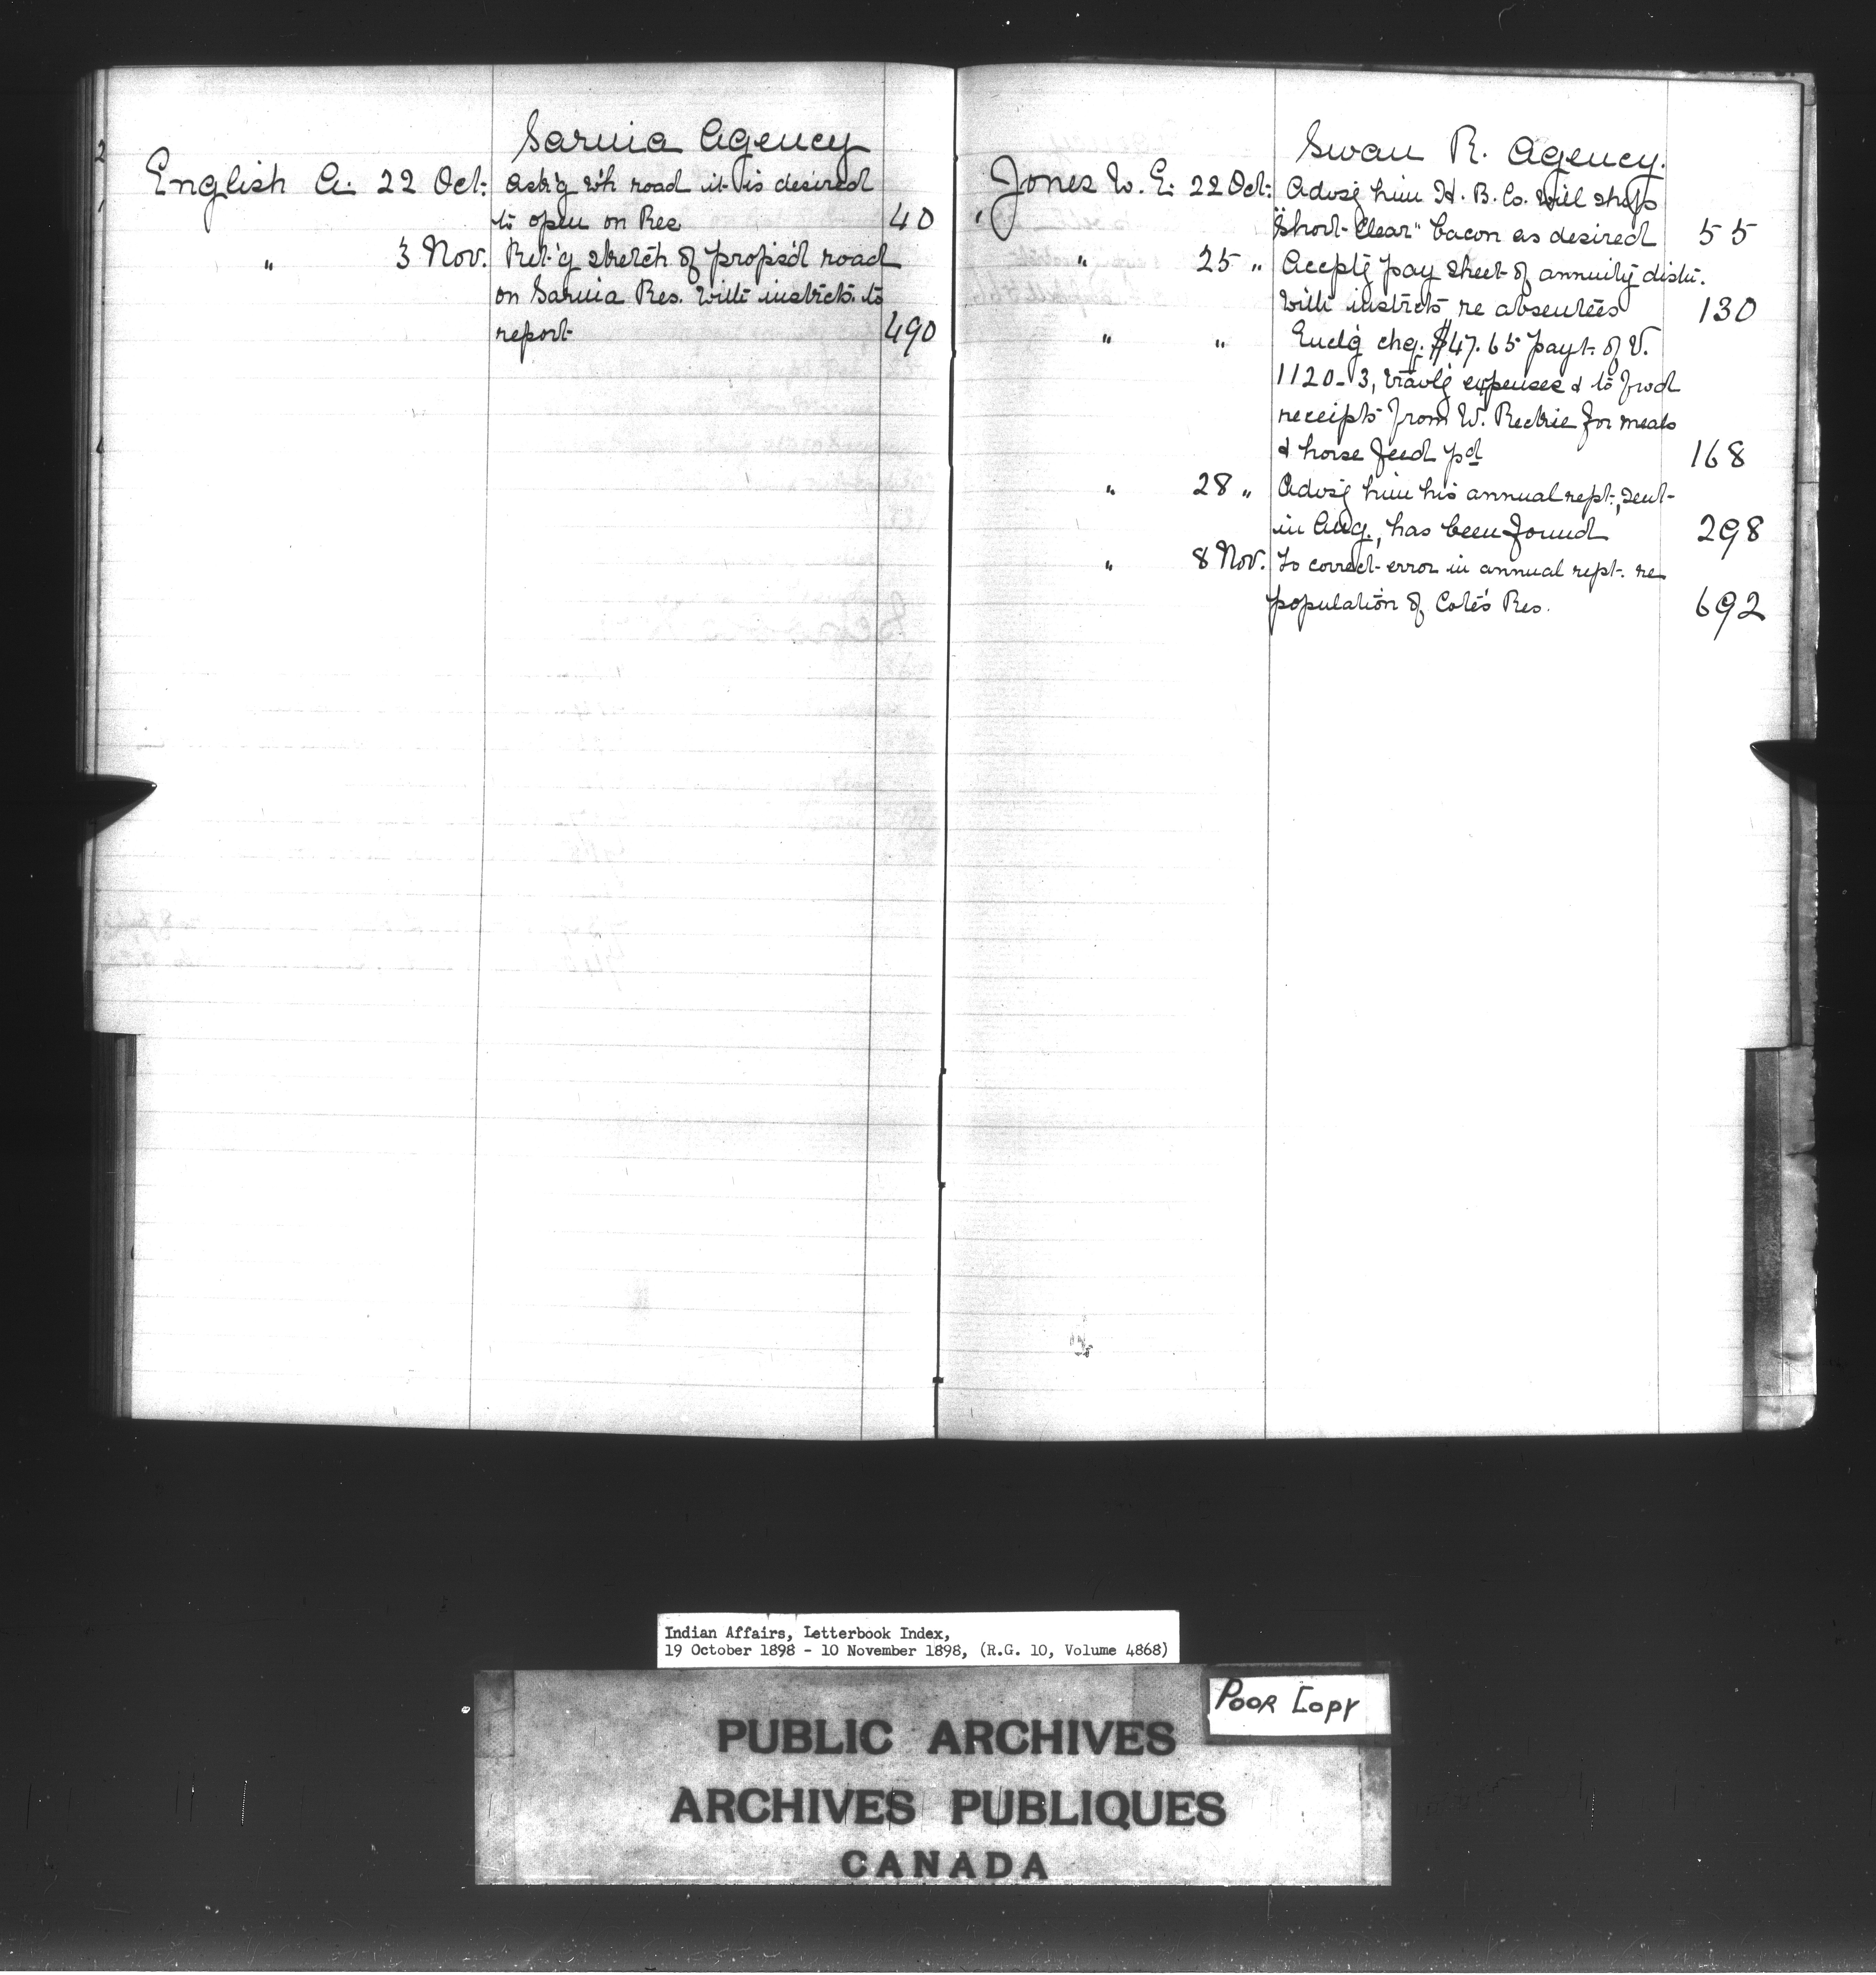 Sarnia Agency
English A. 22 Oct. Ask'g wh road it is desired
to open on Res 40
" 3 Nov. Ret'g sketch of propos'd road
on Sarnia Res. with instrcts. to
report 490
Swan R. Agency.
Jones W. E. 22 Oct. Advsg him H. B. Co. will ship
"Short-Clear" bacon as desired 55
" 25 " Acceptg pay sheet of annuity distn.
with instrcts. re absentees 130
" " Encl'g chq. $47.65 payt. of V.
1120-3, travlg expenses & to frwd
receipts from W. for meals
& horse feed pd 168
" 28 " Advsg him his annual rept., sent
in Aug., has been found 298
" 8 Nov. To correct error in annual rept. re
population of Cote's Res. 692
Indian Affairs, Letterbook Index,
19 October 1898 - 10 November 1898, (R.G. 10, Volume 4868)
POOR COPY
PUBLIC ARCHIVES
ARCHIVES PUBLIQUES
CANADA